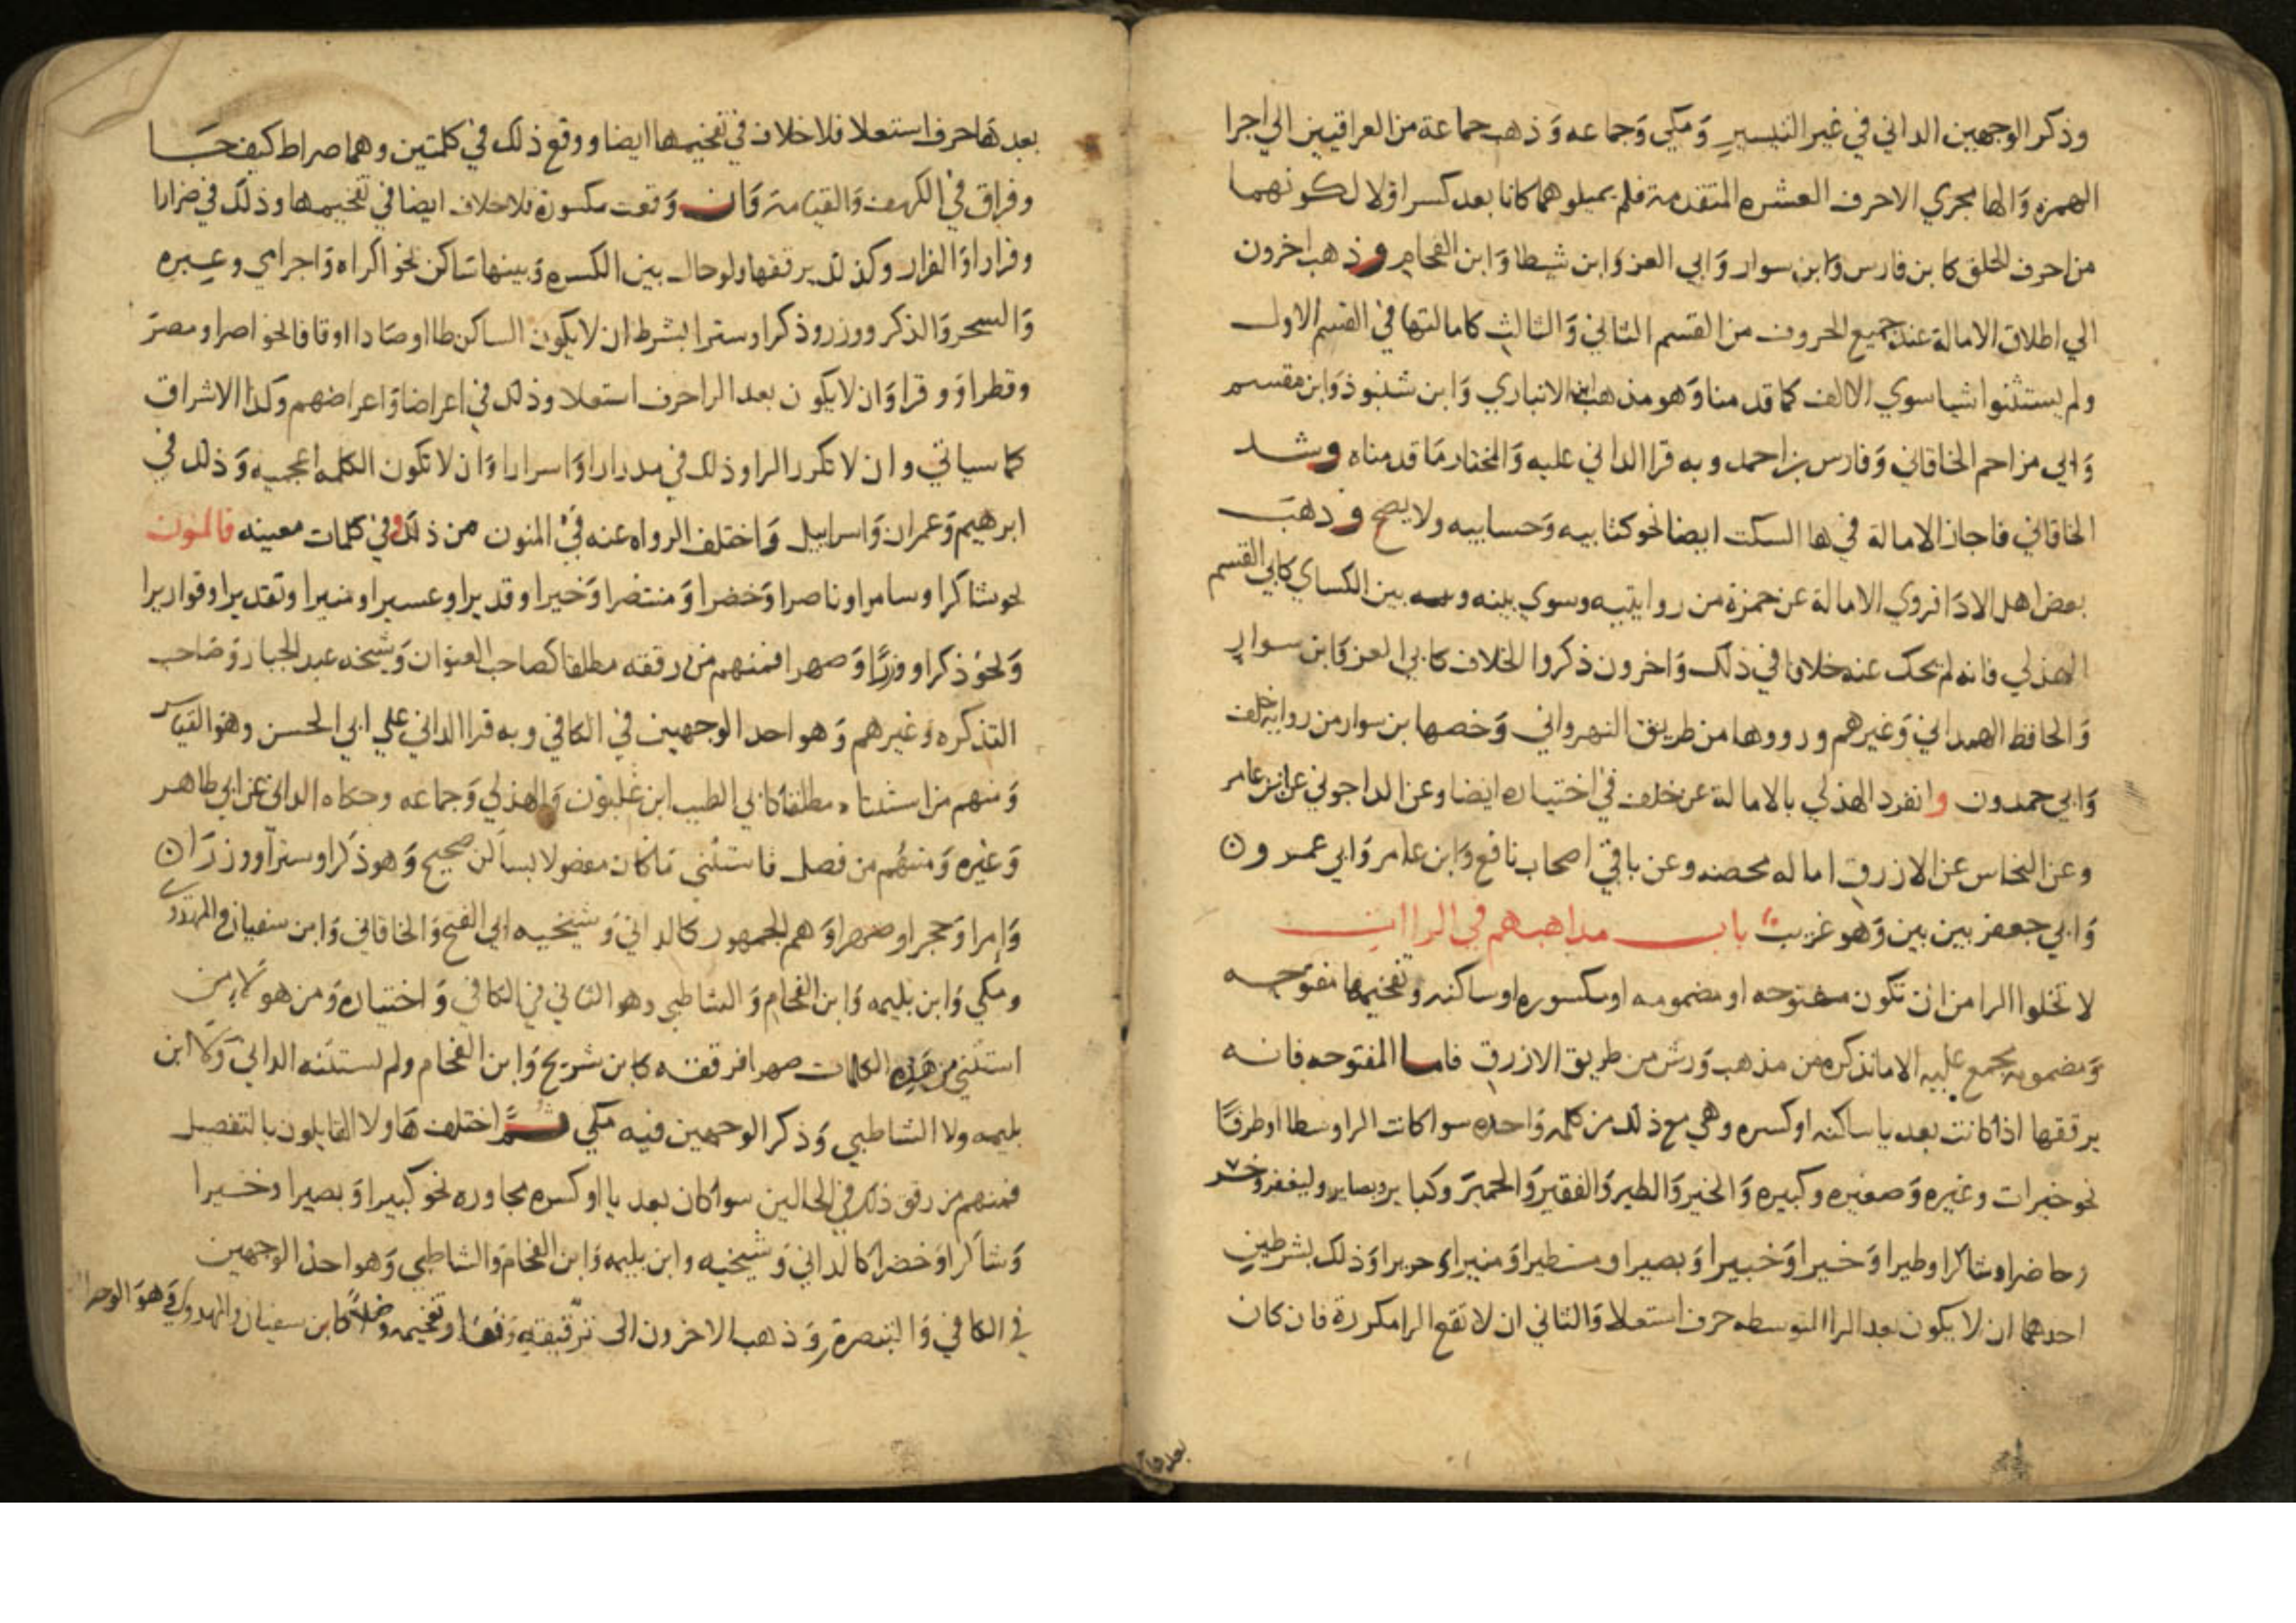 وذكر الوجهين الداني في غير التيسير وَمكي وَجماعه وَذهب جماعة من العراقيين الي اجرا
الهمزه وَالها مجري الاحرف العشره المتقدمة فلم يميلوهما كانا بعد كسر اولا لكونهما
من احرف الحلق كابن فارس وَابن سوار وَابي العز وَابن شيطا وَابن الفحام وذهب اخرون
الي اطلاق الامالة عند جميع الحروف من القسم الثاني وَالثالث كامالتها في القسم الاول
ولم يستثنوا شيا سوي الالف كما قدمنا وَهو مذهب ابن الانباري وَابن شنبوذ وَابن مقسم
وَابي مزاحم الخاقاني وَفارس بن احمد وبه قرا الداني عليه وَالمختار مَا قدمناه وشد
الخاقاني فاجاز الامالة في ها السكت ايضا نحو كتابيه وَحسابيه ولا يصح وذهبَ
بعض اهل الادَا فروي الامالة عن حمزة من روايتيه وسوي بينه وبين الكساي كابي القسم
الهذلي فانه لم يحك عنه خلافا في ذلك وَاخرون ذكروا الخلاف كابي العز وَابن سوار
وَالحافظ الهمداني وَغيرهم ورووها من طريق النهرواني وَخصها بن سوار من رواية خلف
وَابي حمدون وانفرد الهذلي بالامالة عن خلف في اختياره ايضا وعن الداجوني عن ابن عامر
وعن النخاس عن الازرق اماله محضه وعن باقي اصحاب نافع وَابن عامر وَابي عمرو ن
وَابي جعفر بين بين وَهو غريب باب مذاهبهم في الراات
لا تخلوا الرا من ان تكون مفتوحه او مضمومه او مكسوره او ساكنه وتفخيمها مفتوحه
وَمضمومه مجمع عليه الا ما نذكره من مذهب وَرش من طريق الازرق فاما المفتوحه فانه
يرققها اذا كانت بعد يا ساكنه او كسره وهي مع ذلك من كلمه وَاحده سوا كانت الرا وسطا او طرفًا
نحو خيرات وغيره وَصغيره وكبيره وَالخير وَالطير وَالفقير وَالحمير وكبا ير وبصاير وليغفر وخسر
وحاضرا وشاكرا وطيرا وَخيرا وَخبيرا وَبصيرا ومستطيرا وَمنيرا وحريرا وَذلك بشرطين
احدهما ان لا يكون بعد الرا المتوسطه حرف استعلا وَالثاني ان لا تقع الرا مكررة فان كان
بعدها
بعدهَا حرف استعلا فلا خلاف في تفخيمها ايضا ووقع ذلك في كلمتين وهما صراط كيف جَا
وفراق في الكهف وَالقيامة وَان وَقعت مكسورة فلا خلاف ايضا في تفخيمها وذلك في ضرارا
وفرارا وَالفرار وكذلك يرققها ولو حال بين الكسره وَبينها ساكن نحو اكراه وَاجرامي وعبره
وَالسحر وَالذكر ووزر وذكرا وسترا بشرط ان لا يكون الساكن طا او صَادا او قافا نحو اصرا ومصرَ
وقطرا وَوقرا وَان لا يكون بعد الرا حرف استعلا وذلك في اعراضا وَاعراضهم وكذا الاشراق
كما سياتي وان لا تكرر الرا وذلك في مدرارا وَاسرارا وَان لا تكون الكلمه اعجميه وَذلك في
ابرهيم وَعمران وَاسراييل وَاختلف الرواه عنه في المنون من ذلك وفي كلمات معينه فالمنون
نحو شاكرا وسامرا وناصرا وَخضرا وَمنتصرا وَخيرا وقديرا وعسيرا ومنيرا وتقديرا وقواريرا
وَنحوُ ذكرا ووزرًا وَصهرا فمنهم من رققه مطلقا كصاحب العنوان وَشيخه عبد الجبار وَصَاحب
التذكره وَغيرهم وَهو احد الوجهين في الكافي وبه قرا الداني علي ابي الحسن وهو القياس
وَمنهم من استثناه مطلقا كابي الطيب ابن غلبون وَالهذلي وَجماعه وحكاه الداني عن ابي طاهر
وَغيره وَمنهُم من فصل فاستثني مَا كان مفصولا بساكن صحيح وَهو ذكرا وسترًا ووزرَا ن
وَامرا وَحجرا وصهرا وَهم الجمهور كالداني وَشيخيه ابي الفتح وَالخاقاني وَابن سفيان والمهدوي
ومكي وَابن بليمه وَابن الفحام وَالشاطبي وهو الثاني في الكافي وَاختياره وَمن هولا من
استثني من هَذه الكلمات صهرا فرققه كابن شريح وَابن الفحام ولم يستثنه الداني وَلا ابن
بليمه ولا الشاطبي وَذكر الوجهين فيه مكي ثم اختلف هَاولا القايلون بالتفصيل
فمنهم من رقق ذلك في الحالين سوا كان بعد يا او كسره مجاوره نحو كبيرا وَبصيرا وخبيرا
وَشاكرا وَخضرا كالداني وَشيخيه وابن بليمه وَابن الفحام وَالشاطبي وَهو احد الوجهين
في الكافي وَالتبصرة وَذهب الاخرون الى ترقيقه وَقفا وتفخيمه وَصلاً كابن سفيان والمهدوي وَهوَ الوجه